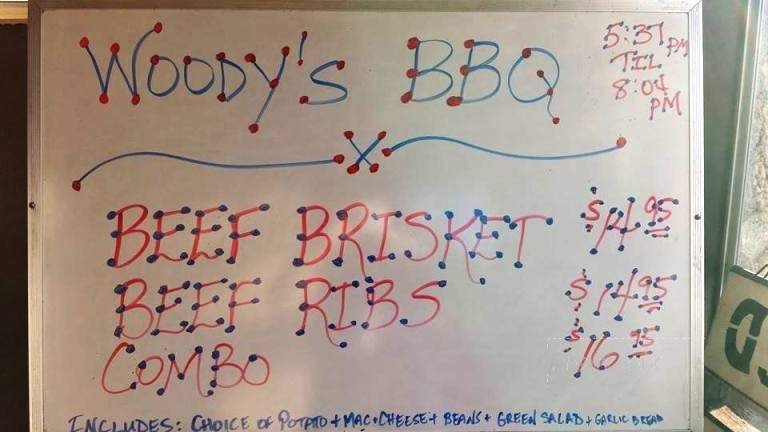 WOODY'S BBQ
5:37 PM
TIL
8:04 PM
X
BEEF BRISKET $14.95
BEEF RIBS $14.95
COMBO $16.95
INCLUDES: CHOICE OF POTATO + MAC + CHEESE + BEANS + GREEN SALAD + GARLIC BREAD